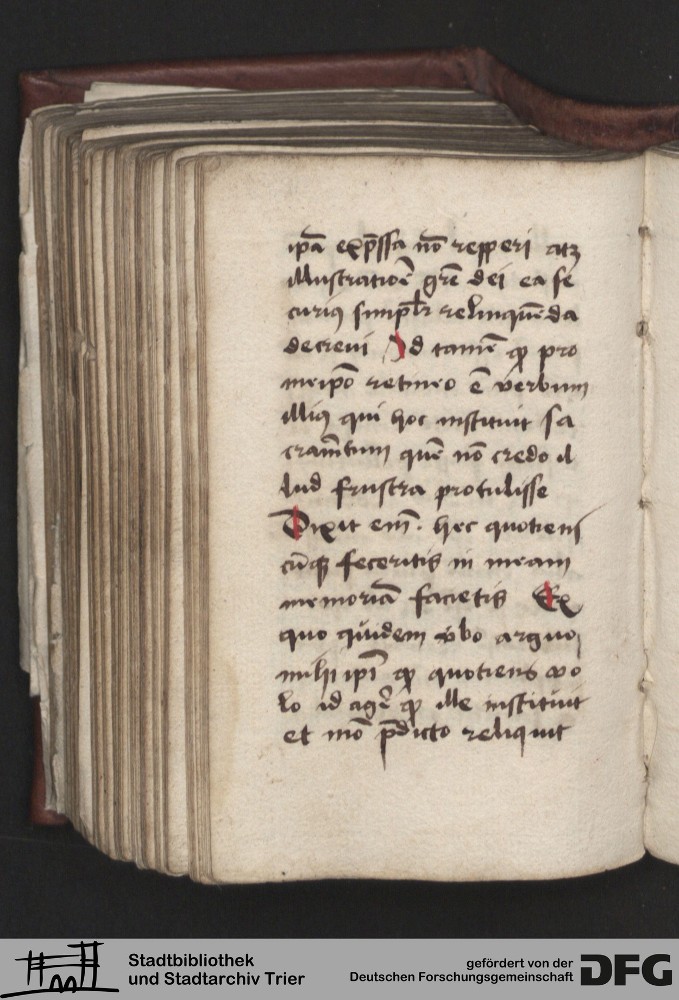 ip̄a exp̄ssa nō repperi atꝫ
illustratiōe grē dei ea se
curiꝰ simpl̄r relinquēda
decreui Id tamē ꝙ pro
meip̄o retineo ē verbum
illiꝰ qui hoc instituit sa
cram̄tum quē nō credo il
lud frustra protulisse
Dixit em̄. hec quotiens
cūqꝫ feceritis in meam
memoriā facietis Ex
quo quidem v̄bo arguo
mihi ip̄i ꝙ quotiens vo
lo id agē ꝙ ille instituit
et mō p̄dicto reliquit
Stadtbibliothek
und Stadtarchiv Trier
gefördert von der
Deutschen Forschungsgemeinschaft
DFG